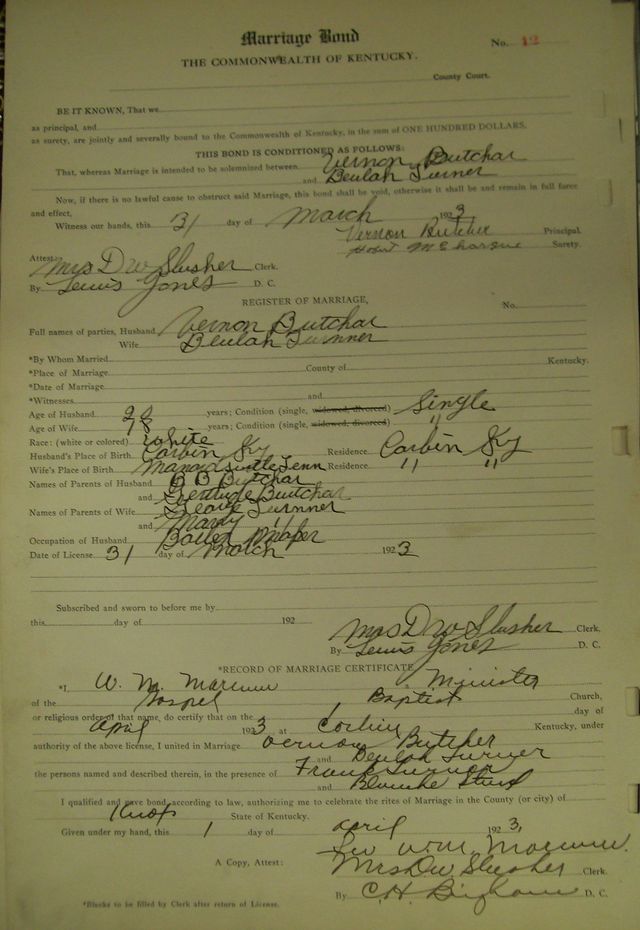 Marriage Bond
No. 12
THE COMMONWEALTH OF KENTUCKY.
County Court.
BE IT KNOWN, That we
as principal, and
as surety, are jointly and severally bound to the Commonwealth of Kentucky, in the sum of ONE HUNDRED DOLLARS.
THIS BOND IS CONDITIONED AS FOLLOWS:
That, whereas Marriage is intended to be solemnized between Vernon Butchar
and Beulah Turner
Now, if there is no lawful cause to obstruct said Marriage, this bond shall be void, otherwise it shall be and remain in full force
and effect,
Witness our hands, this 31 day of March 1923
Vernon Butcher Principal.
Hobert McHargue Surety.
Attest: Mrs D W Slusher Clerk.
By Lewis Jones D. C.
REGISTER OF MARRIAGE,
No.
Full names of parties, Husband Vernon Butchar
Wife Beulah Turnner
*By Whom Married
*Place of Marriage County of Kentucky.
*Date of Marriage
*Witnesses and
Age of Husband years; Condition (single, widowed, divorced) Single
Age of Wife years; Condition (single, widowed, divorced) "
Race: (white or colored) White
Husband's Place of Birth Corbin Ky Residence Corbin Ky
Wife's Place of Birth Tenn Residence " "
Names of Parents of Husband B B Butchar
and Gertrude Butchar
Names of Parents of Wife George Turnner
and "
Occupation of Husband Boiler
Date of License 31 day of March 1923
Subscribed and sworn to before me by
this day of 192
Mrs D W Slusher Clerk.
By Lewis Jones D. C.
*RECORD OF MARRIAGE CERTIFICATE
*I, W. M. Minister
of the Gospel Baptist Church,
or religious order of that name, do certify that on the 1 day of
April 1923 at Corbin Kentucky, under
authority of the above license, I united in Marriage Vernon Butcher
and Beulah Turner
the persons named and described therein, in the presence of Frank Turner
and Blanche
I qualified and gave bond, according to law, authorizing me to celebrate the rites of Marriage in the County (or city) of
Knox State of Kentucky.
Given under my hand, this 1 day of April 1923.
A Copy, Attest: Mrs D W Slusher Clerk.
By C. H. Bingham D. C.
*Blanks to be filled by Clerk after return of License.